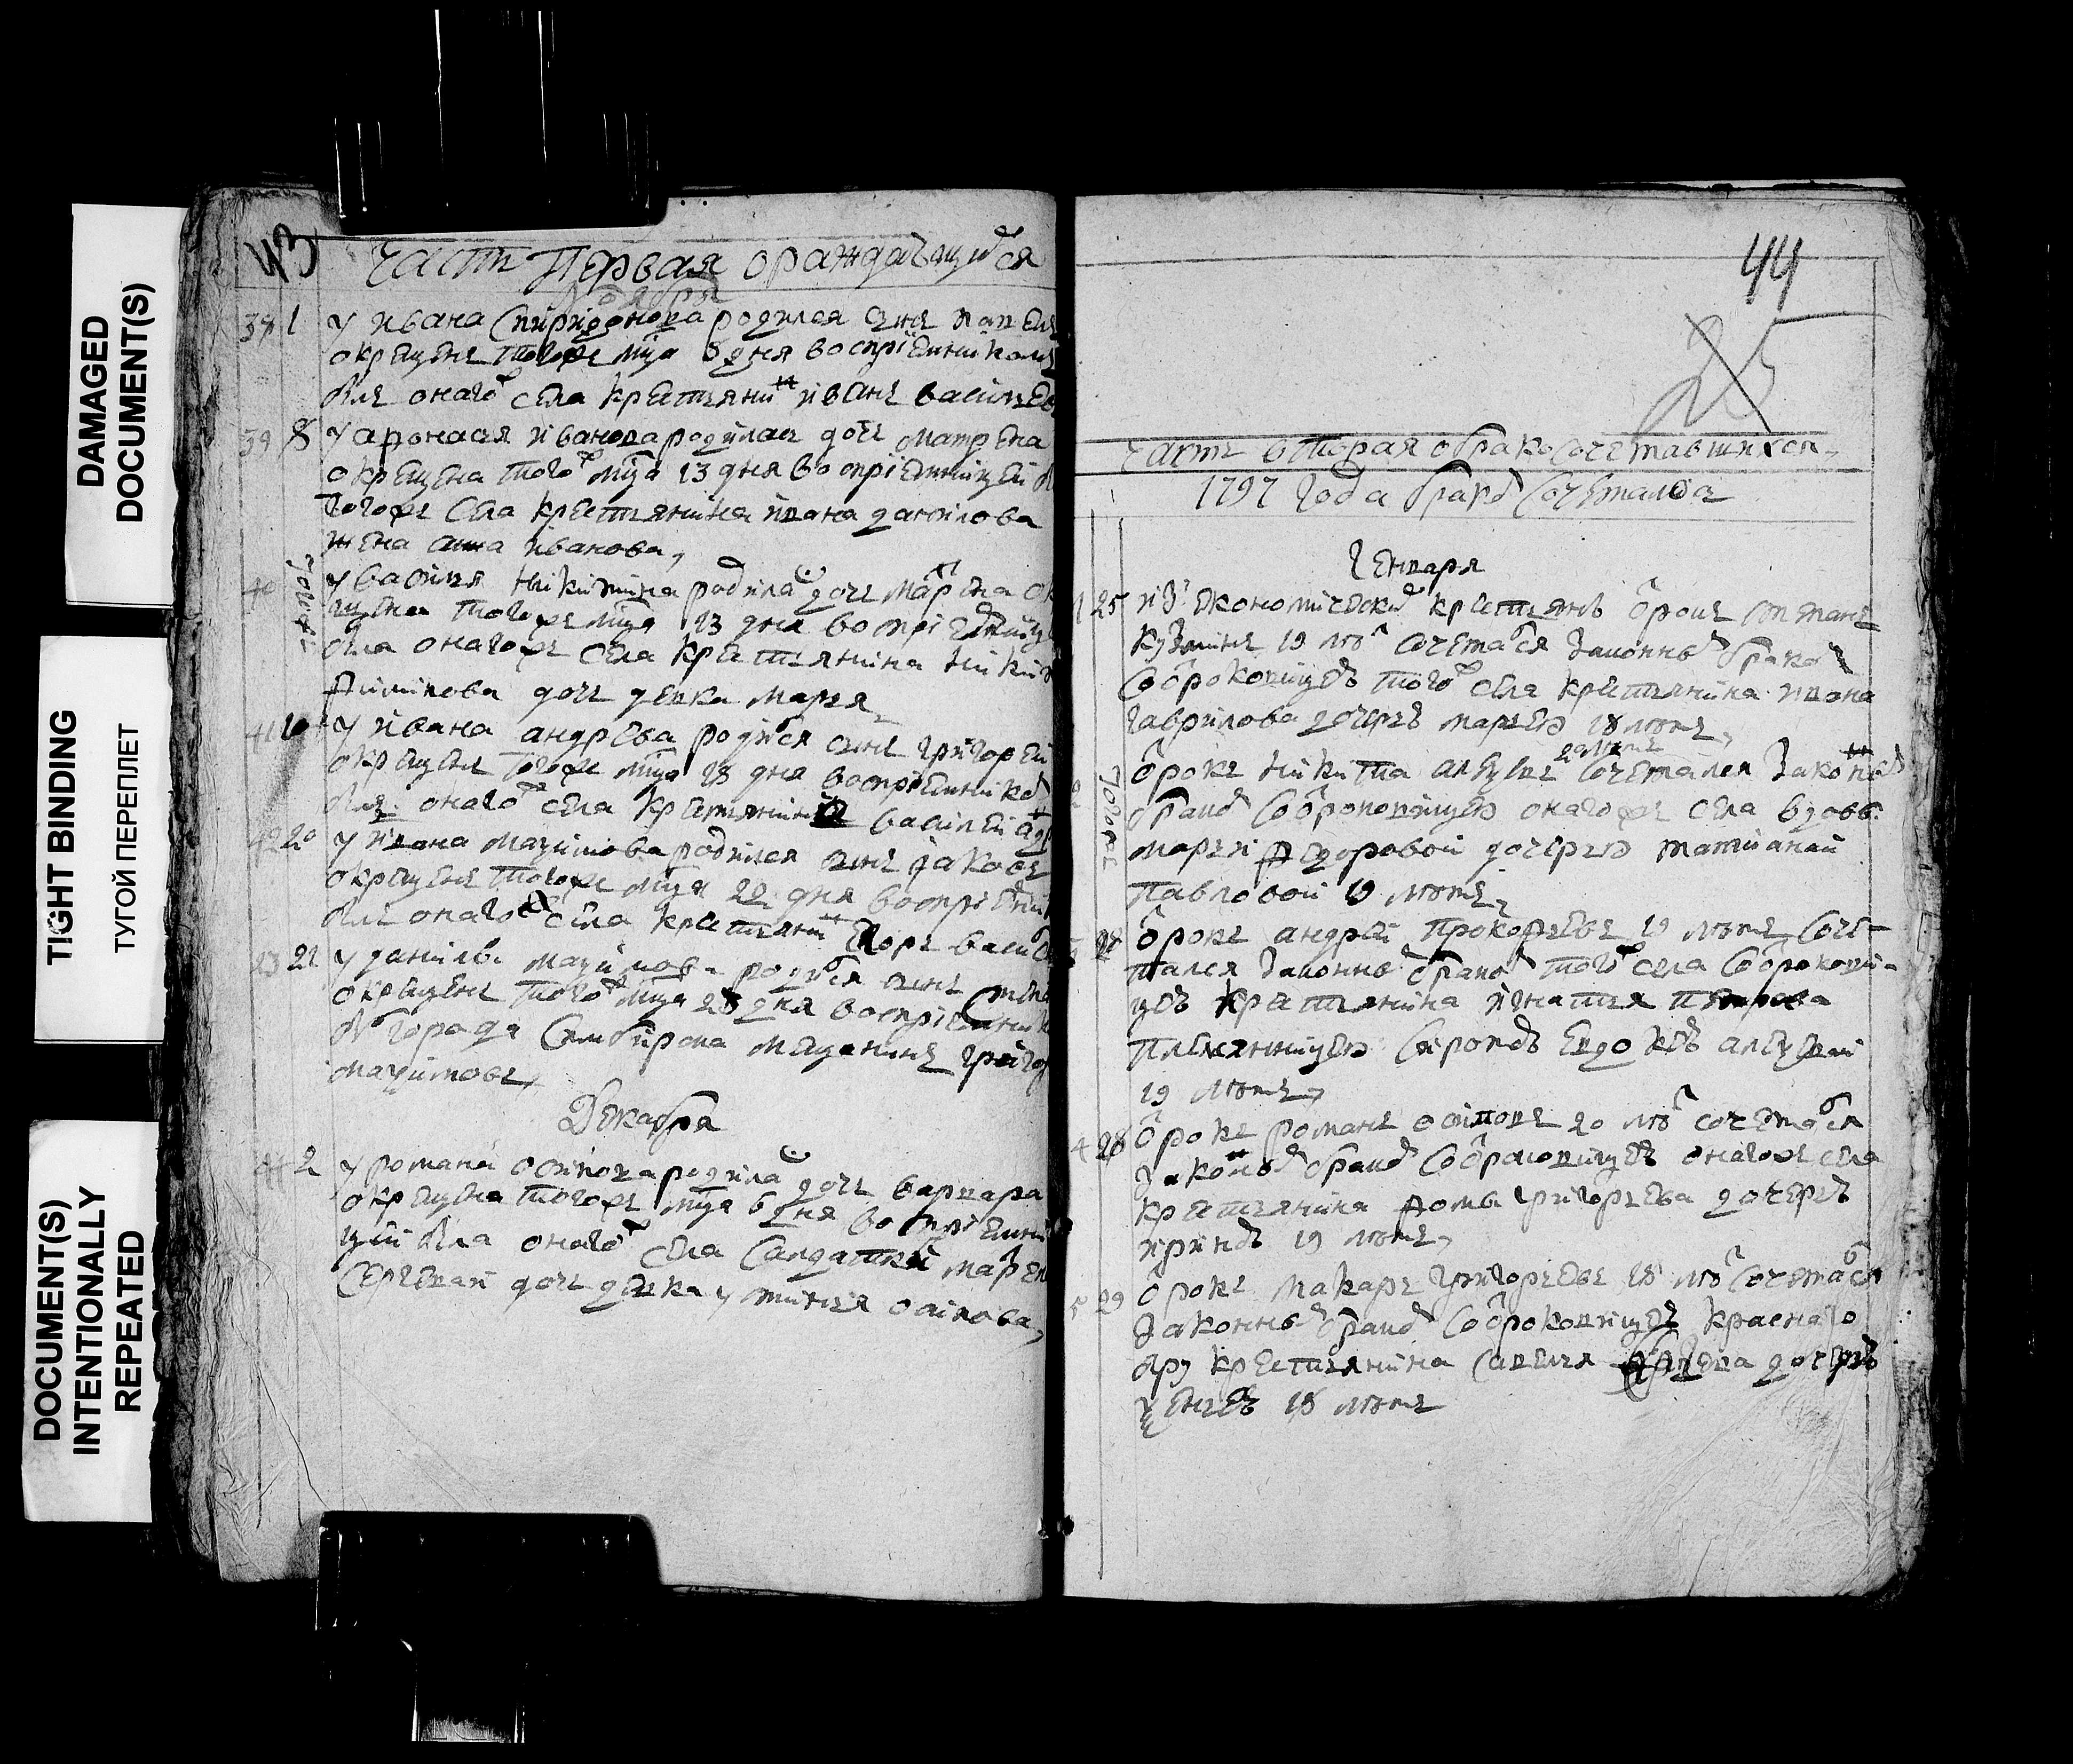 DAMAGED
DOCUMENT(S)
TIGHT BINDING
ТУГОЙ ПЕРЕПЛЕТ
DOCUMENT(S)
INTENTIONALLY
REPEATED
43
часть первая о раждающихся
Ноября
38 1 у ивана спиридонова родился сынъ
окрещенъ тогоже мца 8 дня восприемникомъ
былъ онаго села крестьянинъ иванъ василев
39 8 у афонасия иванова родилась дочь матрена
окрещена того мца 13 дня восприемницей
тогоже села крестьянина ивана данилова
жена анна иванова,
40 тогож у василья никитина родила дочь марья
щена тогоже мца 13 дня восприемниц
была онагоже села крестьянина
дочь девка марья
41 10 у ивана андреева родился сынъ григорей
окрещенъ тогоже мца 18 дня восприемником
былъ онаго села крестьянин василей
42 20 у ивана максимова родился сынъ яковъ
окрещенъ тогоже мца 22 дня восприемник
былъ онаго села крестьянин егоръ
43 21 у данилы максимова родился сынъ
окрещенъ того мца 28 дня восприемник
города симбирска мещанинъ григор
максимовъ
Декабря
44 2 у романа осипова родила дочь варвара
окрещена тогоже мца 6 дня восприемни
цей была онаго села салдатки
дочь девка устинья осипова,
44
25
часть вторая о бракосочетавшихся
1797 года браком сочетались
Генваря
1 25 из економических крестьянъ отрокъ степанъ
кузминъ 19 лѣт сочетался законнымъ браком
с отроковицею того села крестьянина ивана
гаврилова дочерью марьею 18 лѣтъ,
20 лѣтъ
2 тогожъ отрокъ никита алексѣевъ сочетался законным
браком с отроковицею онагоже села вдовы
марьи федоровой дочерью татианой
павловой 19 лѣтъ,
3 отрокъ андрей прокофьевъ 19 лѣтъ соче-
тался законным браком того села с отроковиц-
ею крестьянина игнатья петрова
племянницею сиротою евдокею алексѣевой
19 лѣтъ
4 28 отрокъ романъ осиповъ 20 лѣт сочетался
законнымъ браком с отроковицею онагоже села
крестьянина фомы григорьева дочерью
ириною 19 лѣтъ,
5 29 отрокъ макаръ григорьевъ 18 лѣт сочетался
законным браком с отроковицею краснаго
яру крестьянина савелья дочерью
18 лѣтъ